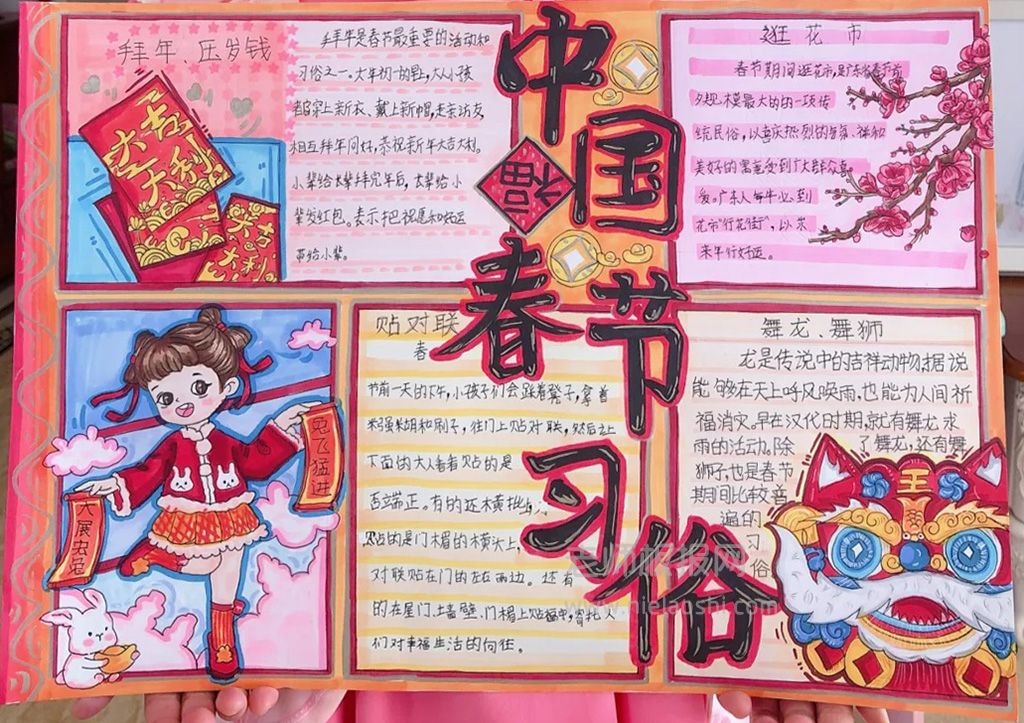 中国春节习俗
福
拜年、压岁钱
大吉大利
大吉大利
拜年是春节最重要的活动和
习俗之一。大年初一的早,大人小孩
都穿上新衣、戴上新帽,走亲访友
相互拜年问好,恭祝新年大吉大利。
小辈给长辈拜完年后,长辈给小
辈发红包。表示把祝愿和好运
带给小辈。
逛花市
春节期间逛花市,是广东省春节前
夕规模最大的的一项传
统民俗,以喜庆热烈的场景、祥和
美好的寓意受到广大群众喜
爱。广东人每年必到
花市“行花街”,以求
来年行好运。
大展宏兔
兔飞猛进
贴对联
春
节前一天的下午,小孩子们会踩着凳子,拿着
米糊和刷子,往门上贴对联,然后让
下面的大人看看贴的是
否端正。有的还横批
贴的是门楣的横头上,
对联贴在门的左右两边。还有
的在屋门、土墙壁、门楣上贴福字,寄托人
们对幸福生活的向往。
舞龙、舞狮
龙是传说中的吉祥动物据说
能够在天上呼风唤雨,也能为人间祈
福消灾。早在汉代时期,就有舞龙求
雨的活动。除了舞龙,还有舞
狮子,也是春节
期间比较普
遍的习
俗
王
老师板报网